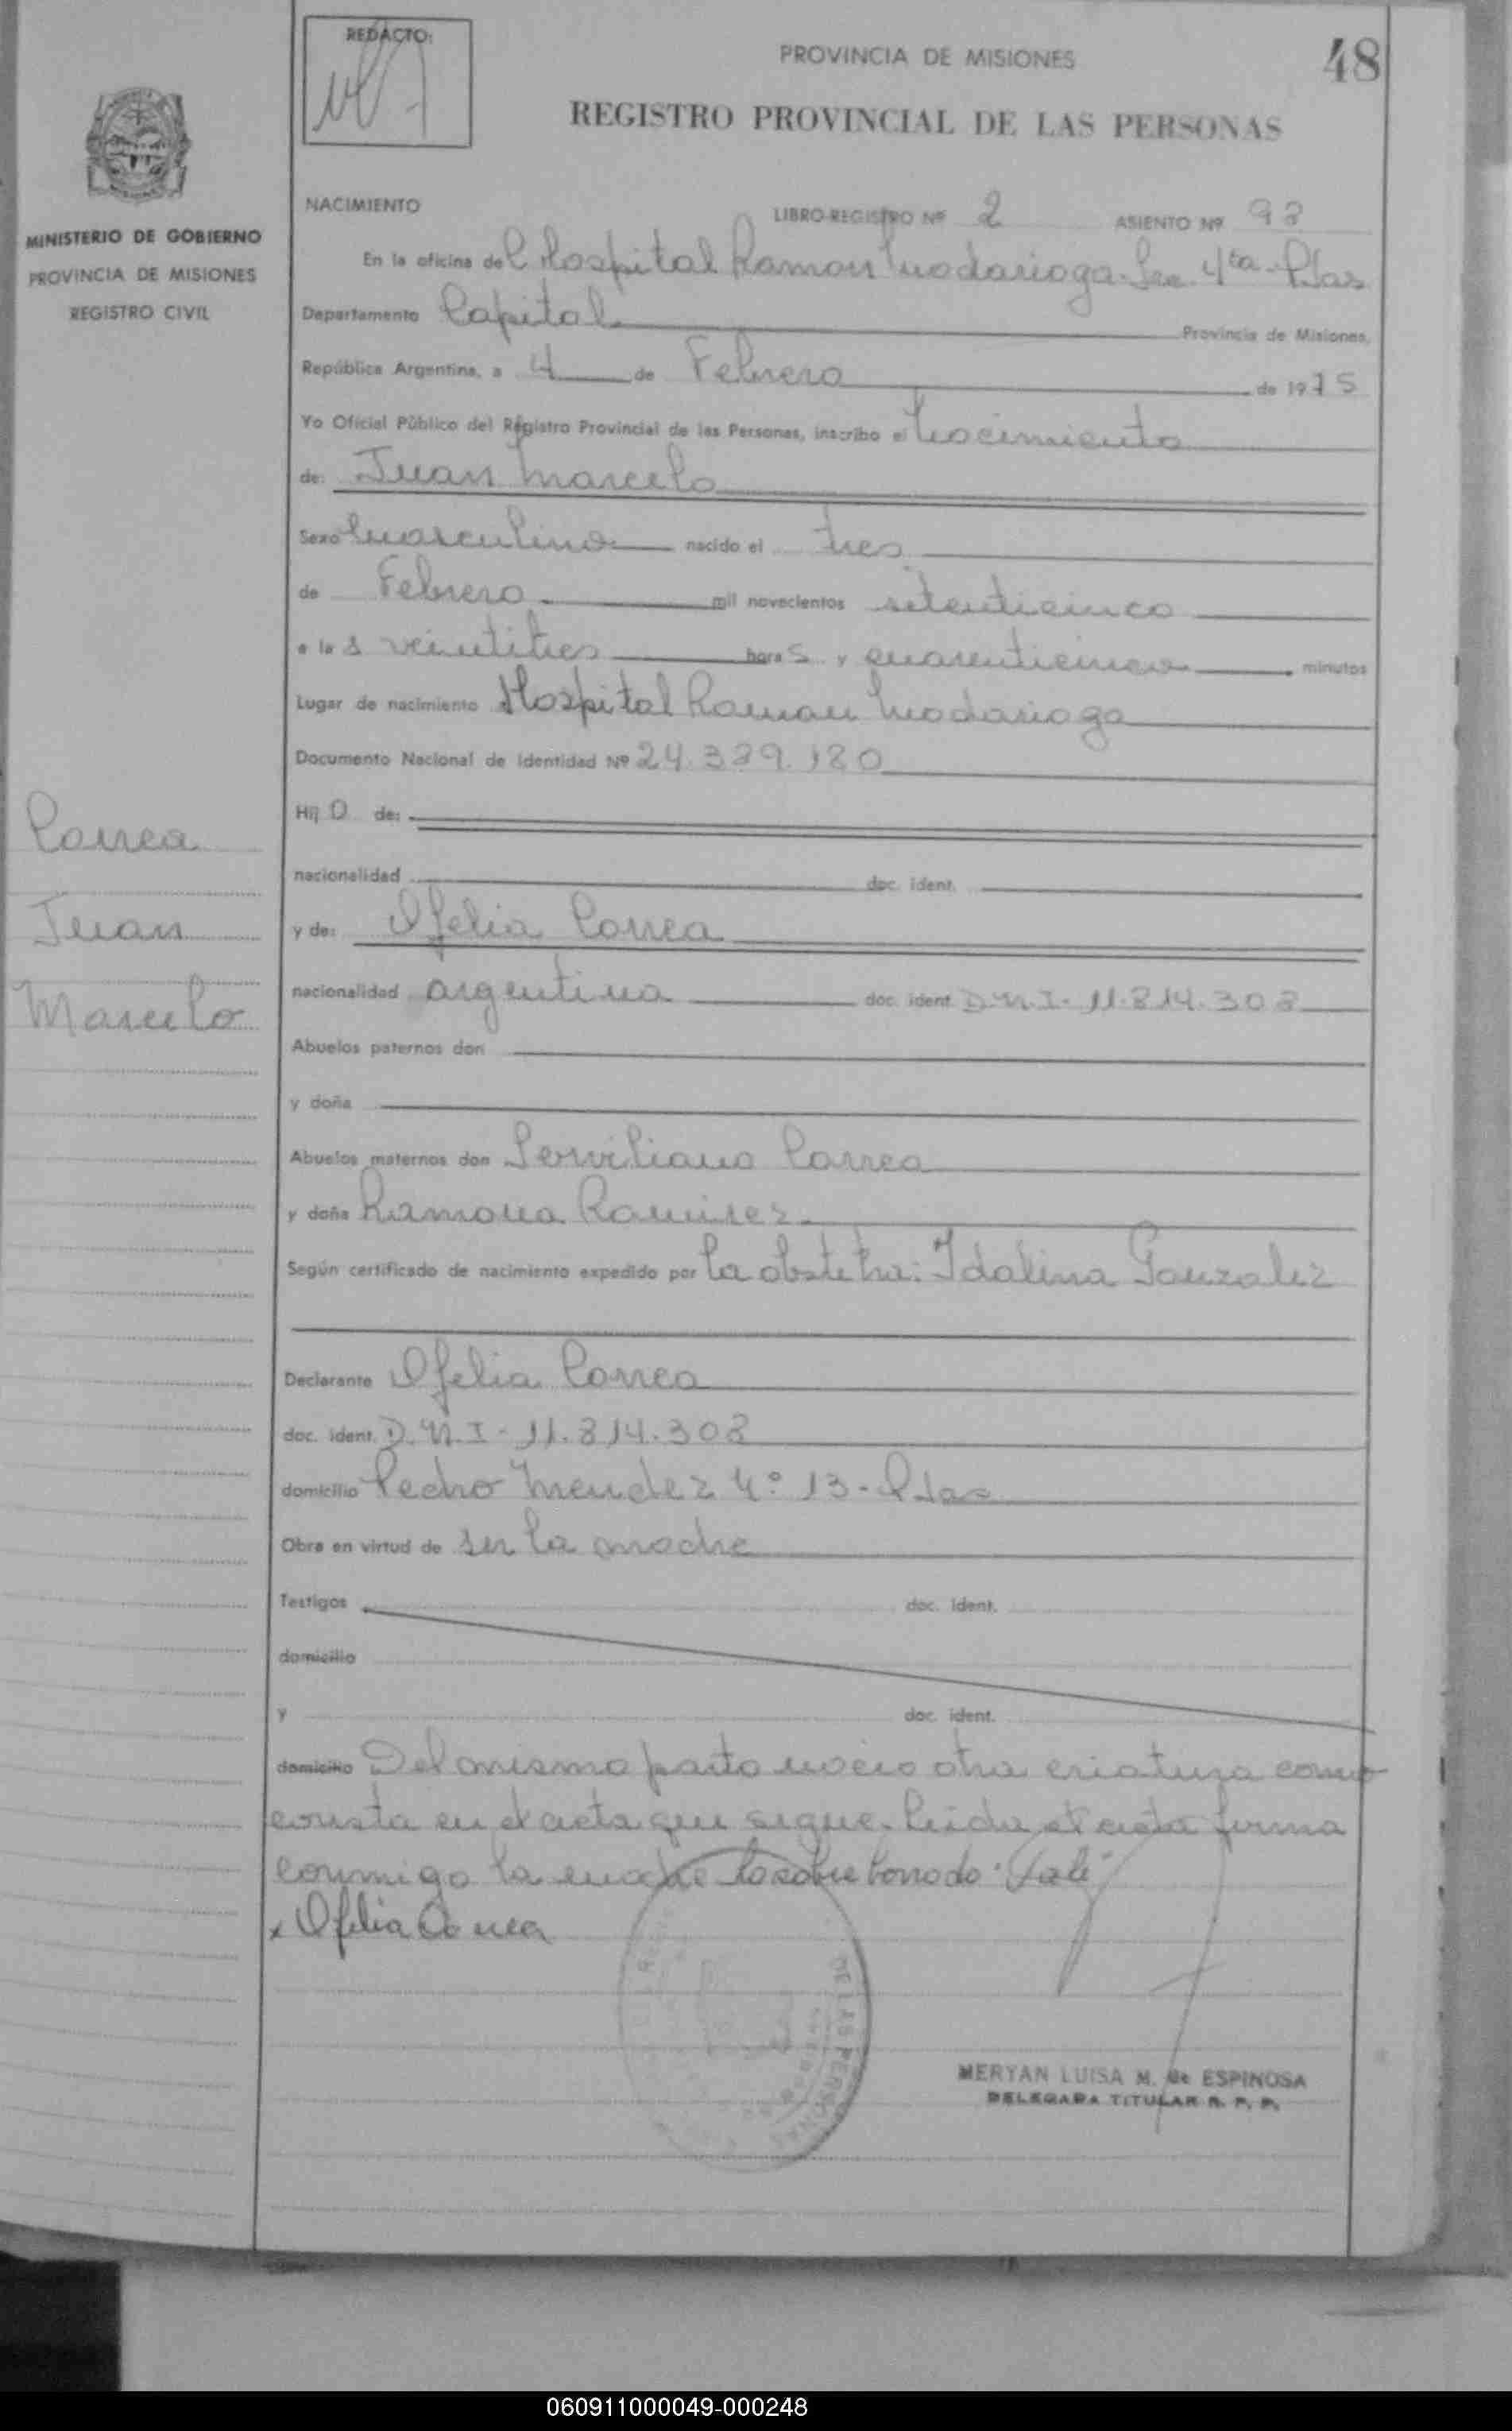 REDACTO:
PROVINCIA DE MISIONES
48
REGISTRO PROVINCIAL DE LAS PERSONAS
MINISTERIO DE GOBIERNO
PROVINCIA DE MISIONES
REGISTRO CIVIL
NACIMIENTO
LIBRO-REGISTRO Nº 2 ASIENTO Nº 98
En la oficina del Hospital Ramon Madariaga - Sec. 4ta - Pdas
Departamento Capital Provincia de Misiones,
República Argentina, a 4 de Febrero de 1975
Yo Oficial Público del Registro Provincial de las Personas, inscribo el nacimiento
de: Juan Marcelo
Sexo masculino nacido el tres
de Febrero mil novecientos setenticinco
a las veintitres horas y cuarenticinco minutos
Lugar de nacimiento Hospital Ramon Madariaga
Documento Nacional de Identidad Nº 24.389.180
Correa
Juan
Marcelo
Hijo de:
nacionalidad doc. ident.
y de: Ofelia Correa
nacionalidad argentina doc. ident. D.N.I. 11.814.308
Abuelos paternos don
y doña
Abuelos maternos don Serviliano Correa
y doña Ramona Ramirez
Según certificado de nacimiento expedido por la obstetra: Idalina Gonzalez
Declarante Ofelia Correa
doc. ident. D.N.I - 11.814.308
domicilio Pedro Mendez 4º 13 - Pdas
Obra en virtud de ser la madre
Testigos doc. ident.
domicilio
y doc. ident.
domicilio Del mismo parto nacio otra criatura como
consta en el acta que sigue. Leida el acta firma
conmigo la madre lo sobre borrado "Vale"
x Ofelia Correa
DE LAS PERSONAS
MERYAN LUISA M. de ESPINOSA
DELEGADA TITULAR R. P. P.
060911000049-000248